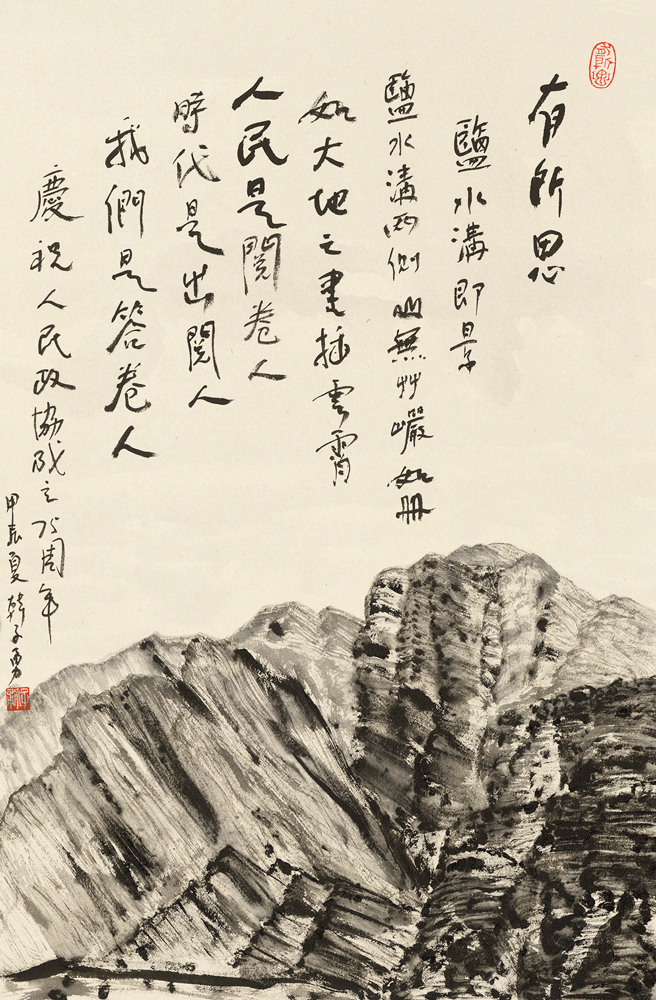 有所思
鹽水溝即景
鹽水溝兩側山無艸巖如册
如大地之書插雲霄
人民是閱卷人
時代是出閱人
我們是答卷人
慶祝人民政協成立75周年
甲辰夏韓子勇